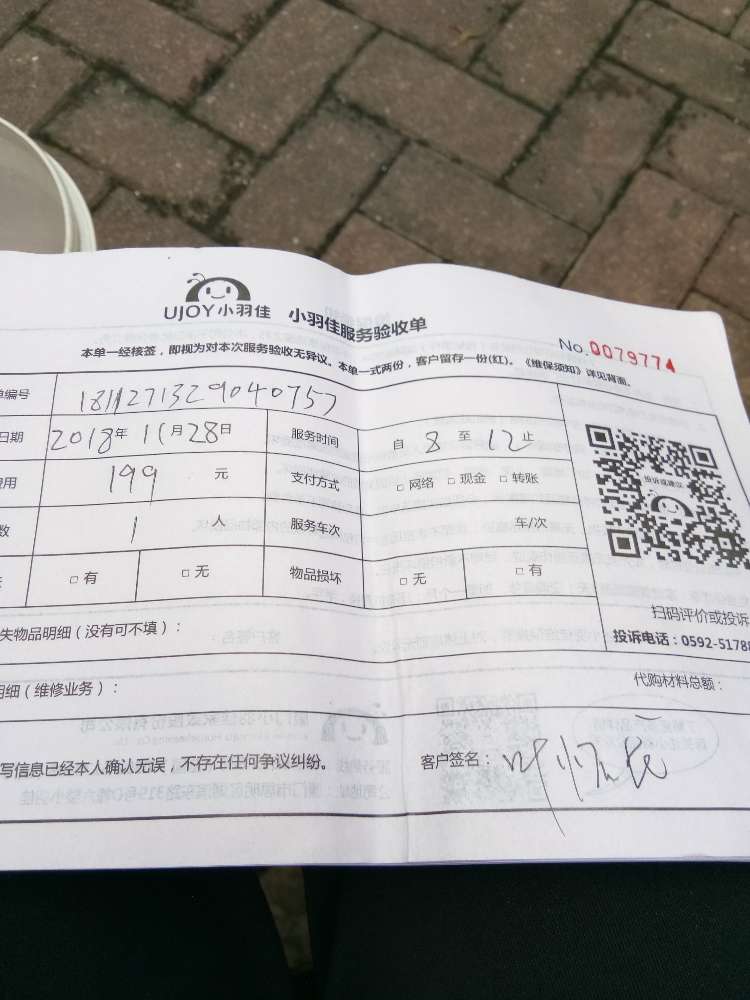 UJOY小羽佳 小羽佳服务验收单
No.0079774
本单一经核签，即视为对本次服务验收无异议。本单一式两份，客户留存一份(红)。《维保须知》详见背面。
单编号 181127132904075 7
日期 2018年11月28日 服务时间 自8至12止
费用 199 元 支付方式 □网络 □现金 □转账
数 1 人 服务车次 车/次
□有 □无 物品损坏 □无 □有
投诉或建议
扫码评价或投诉
投诉电话：0592-51788
失物品明细（没有可不填）：
明细（维修业务）： 代购材料总额：
写信息已经本人确认无误，不存在任何争议纠纷。 客户签名：叶